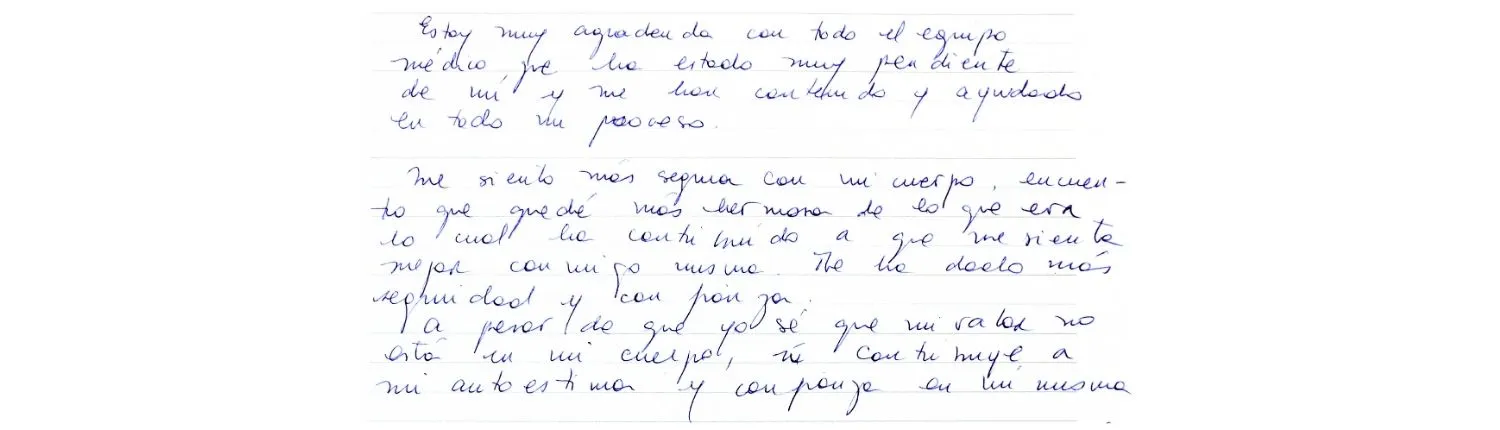 Estoy muy agradecida con todo el equipo
médico, que ha estado muy pendiente
de mí y me han contenido y ayudado
en todo mi proceso.
Me siento más segura con mi cuerpo, encuen-
tro que quedé más hermosa de lo que era
lo cual ha contribuido a que me sienta
mejor conmigo misma. Me ha dado más
seguridad y confianza.
A pesar de que yo sé que mi valor no
está en mi cuerpo, sí contribuye a
mi autoestima y confianza en mí misma